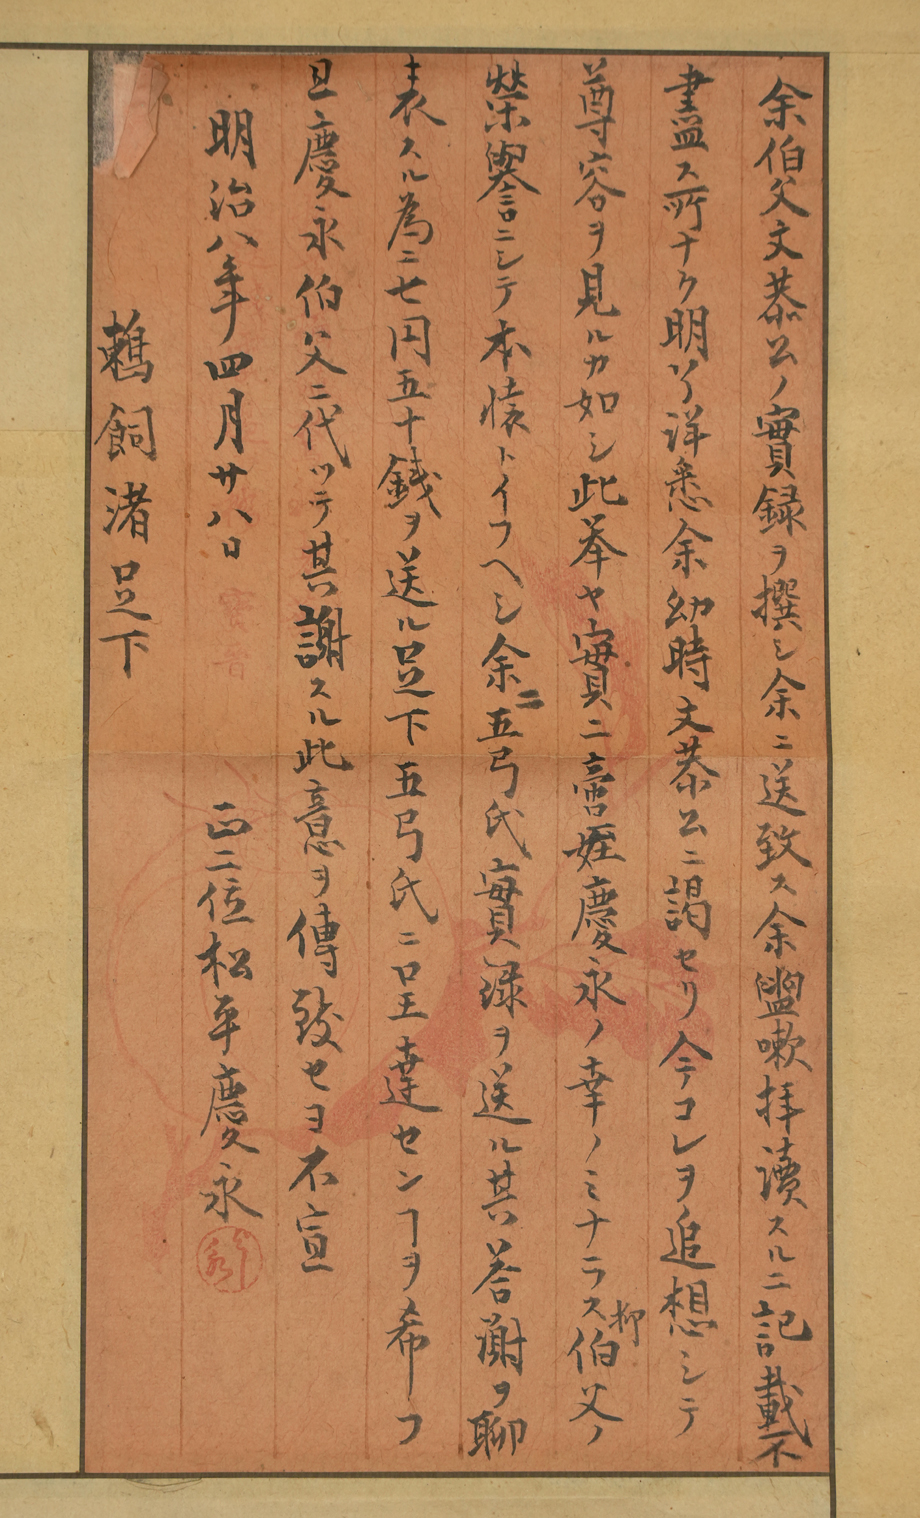 余伯父文恭公ノ實録ヲ撰シ余ニ送致ス余盥嗽拝讀スルニ記載不
盡ス所ナク明ニ詳悉余幼時文恭公ニ謁セリ今コレヲ追想シテ
尊容ヲ見ルカ如シ此挙ヤ實ニ啻姪慶永ノ幸ノミナラス抑伯父ノ
榮譽ニシテ本懐トイフヘシ余ニ五弓氏實録ヲ送ル其答謝ヲ聊
表スル為ニ七円五十銭ヲ送ル足下五弓氏ニ呈達センヿヲ希フ
且慶永伯父ニ代ツテ其謝スル此意ヲ傳致セヨ不宣
明治八年四月廿八日
正二位松平慶永
鵜飼渚足下